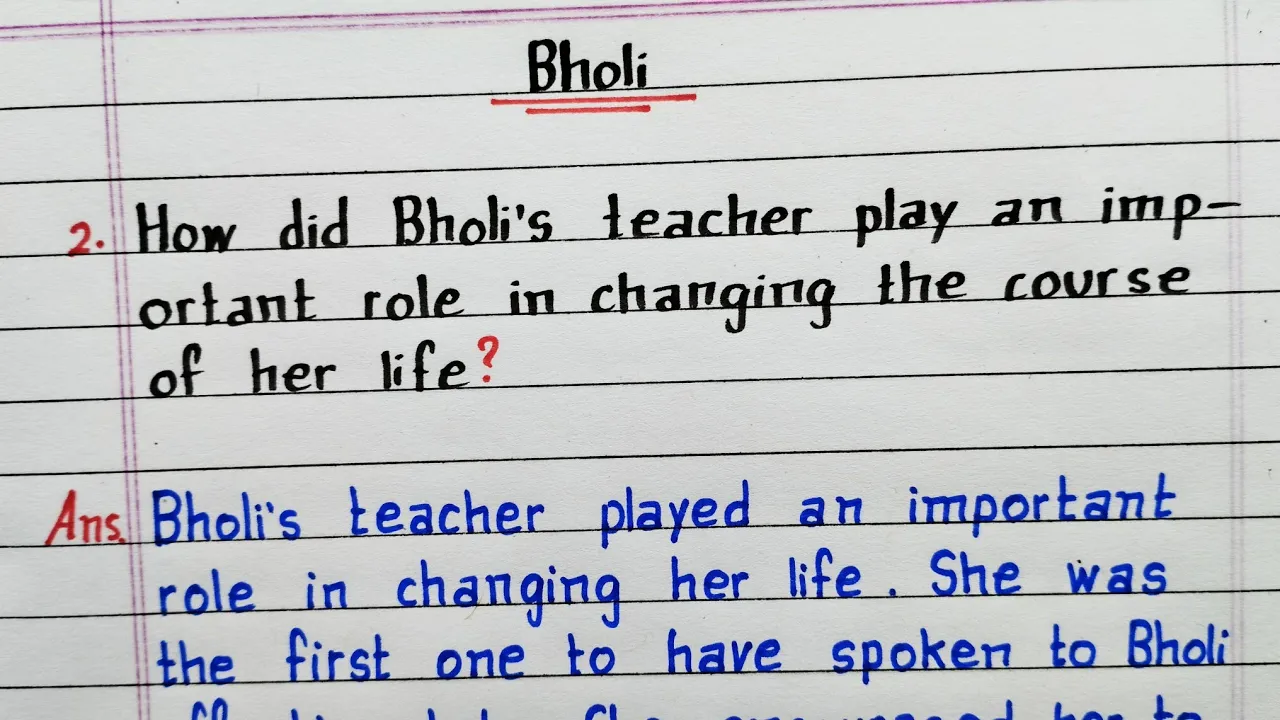 Bholi
2. How did Bholi's teacher play an imp-
ortant role in changing the course
of her life?
Ans. Bholi's teacher played an important
role in changing her life. She was
the first one to have spoken to Bholi